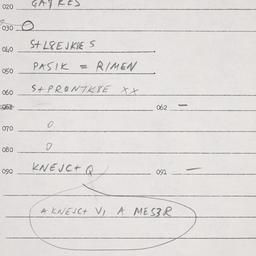 020 GAYRES
030 O
040 S+L8EJKIE S
050 PASIK = RIMEN
060 S+PRONTK8E XX
061 062 —
070 0
080 0
090 KNEJC+Q 091 —
A KNEJC+ VI A MES3R